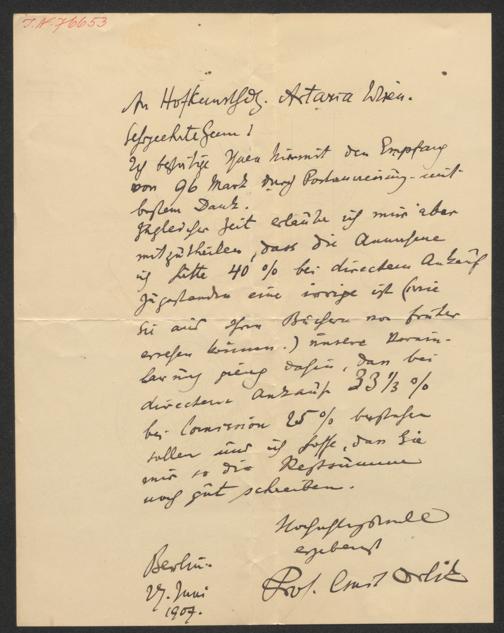 J.N. 76653
An Hofkunsthdg. Artaria Wien.
Sehrgeehrte Herrn!
Ich bestätige Ihnen hiermit den Empfang
von 96 Mark durch Postanweisung mit
bestem Dank.
Zugleicher Zeit erlaube ich mir aber
mitzutheilen, dass die Annahme
ich hätte 40 % bei directem Ankauf
zugestanden eine irrige ist (wie
Sie aus Ihren Büchern von früher
ersehen können.) unsere Verein-
barung gieng dahin, dass bei
directem Ankauf 33 1/3 %
bei Comission 25 % bestehen
sollen und ich hoffe, dass Sie
mir so die Restsumme
noch gut schreiben.
Hochachtungsvoll
ergebenst
Prof. Emil Orlik
Berlin.
27. Juni
1907.